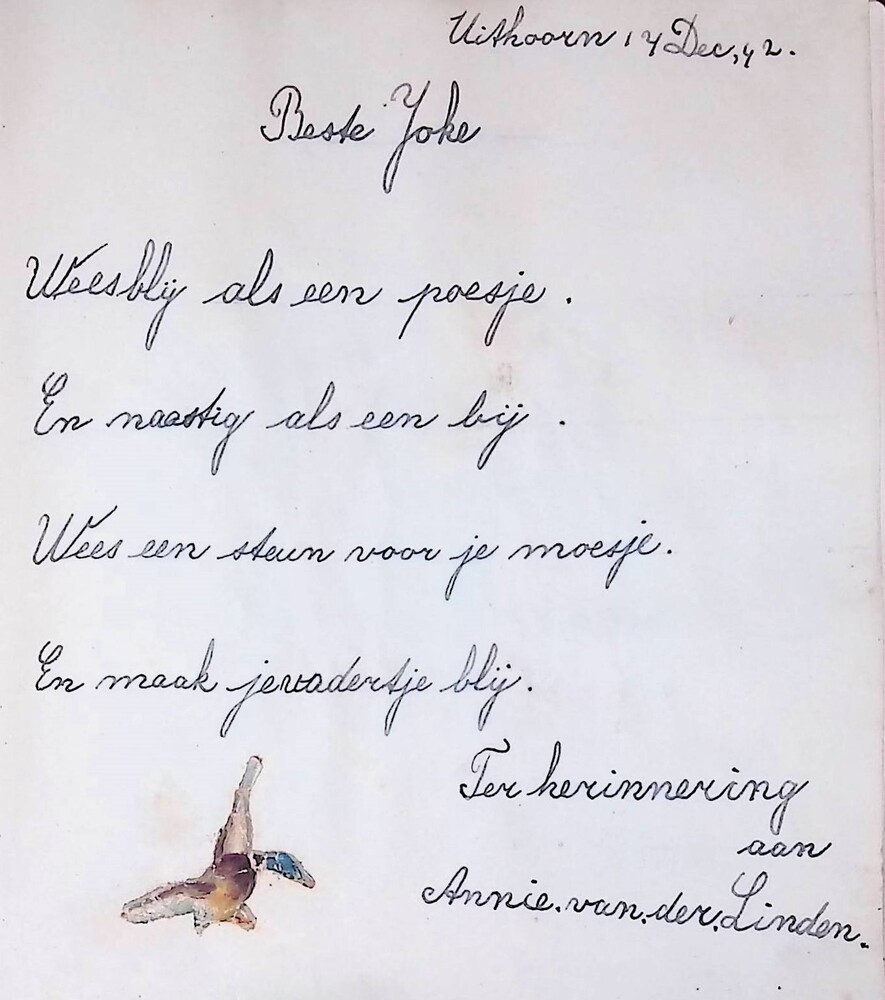 Uithoorn 14 Dec, 42.
Beste Joke
Weesblij als een poesje.
En naastig als een bij.
Wees een steun voor je moesje.
En maak jevadertje blij.
Ter herinnering
aan
Annie.van.der.Linden.